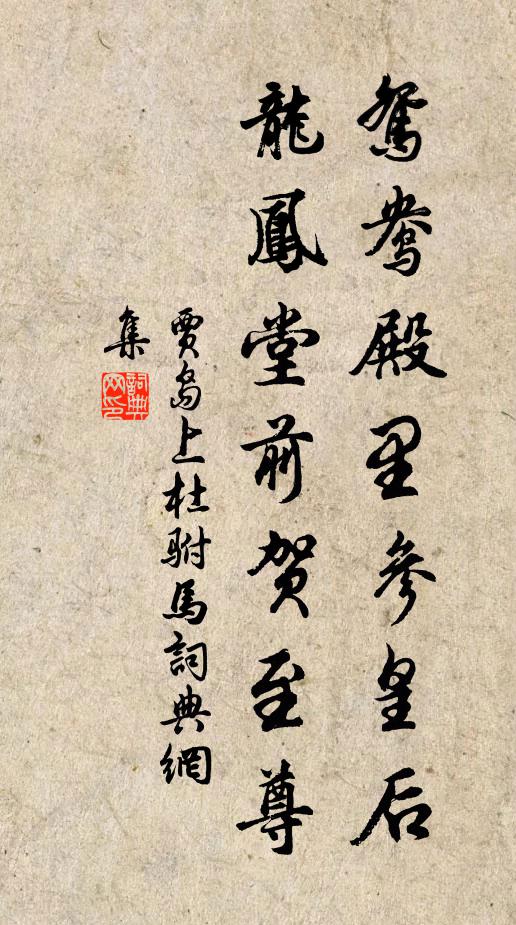 鴛鴦殿里參皇后
龍鳳堂前賀至尊
賈島上杜駙馬詞典網
集
詞典網印